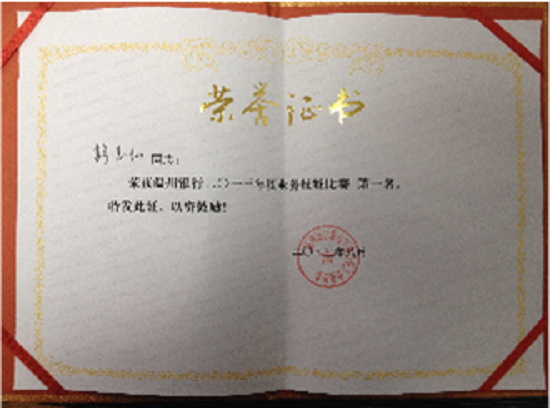 荣誉证书
同志:
荣获温州银行二〇一三年度业务技能比赛 第一名。
特发此证，以资鼓励!
年八月